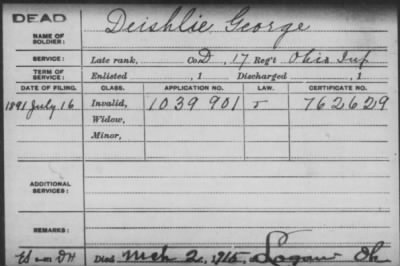 DEAD
NAME OF SOLDIER: Deishlie George
SERVICE: Late rank, Co. D, 17 Reg't Ohio Inf
TERM OF SERVICE: Enlisted , 1 Discharged , 1
DATE OF FILING. CLASS. APPLICATION NO. LAW. CERTIFICATE NO.
1891 July 16 Invalid, 1039901 762629
Widow,
Minor,
ADDITIONAL SERVICES:
REMARKS:
Died Mch 2, 1915, Logan Oh